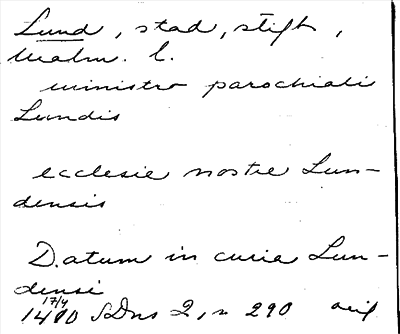 Lund, stad, stift,
Malm. l.
ministro parochiali
Lundis
ecclesie nostre Lun-
densis
Datum in curia Lun-
densi
17/4
1410 SDns 2, n 290 avil